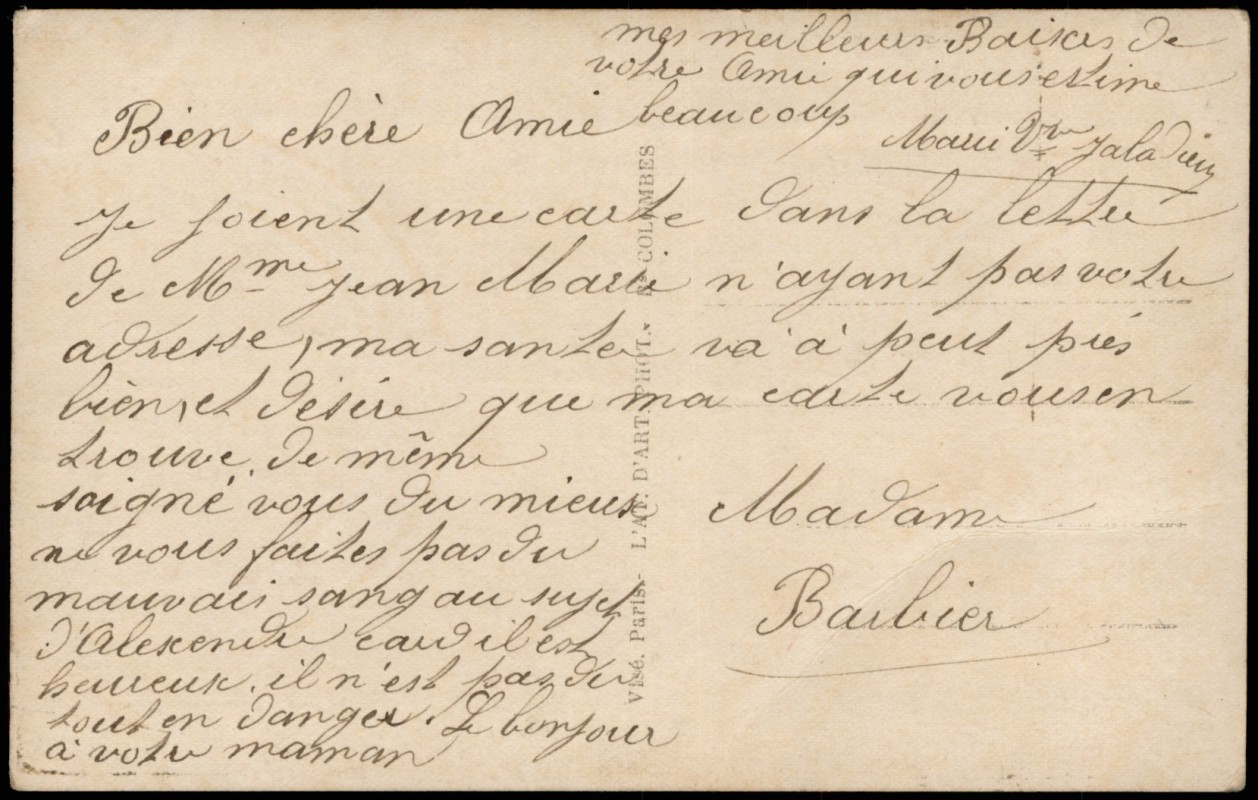 Bien chère Amie
Je joient une carte dans la lettre
de Mme Jean Marie n'ayant pas votre
adresse, ma santer va à peut près
bien, et désire que ma carte vous en
trouve de même
soigné vous du mieus
ne vous faites pas du
mauvais sang au sujet
d'Alexendre card il est
heureux. il n'est pas du
tout en danger. Le bonjour
à votre maman
mes meilleurs Baisers de
votre Amie qui vous estime
beaucoup
Marie Vve Jaladieu
Madame
Barbier
Visé. Paris.- L'AT. D'ART. PHOT.- COLOMBES